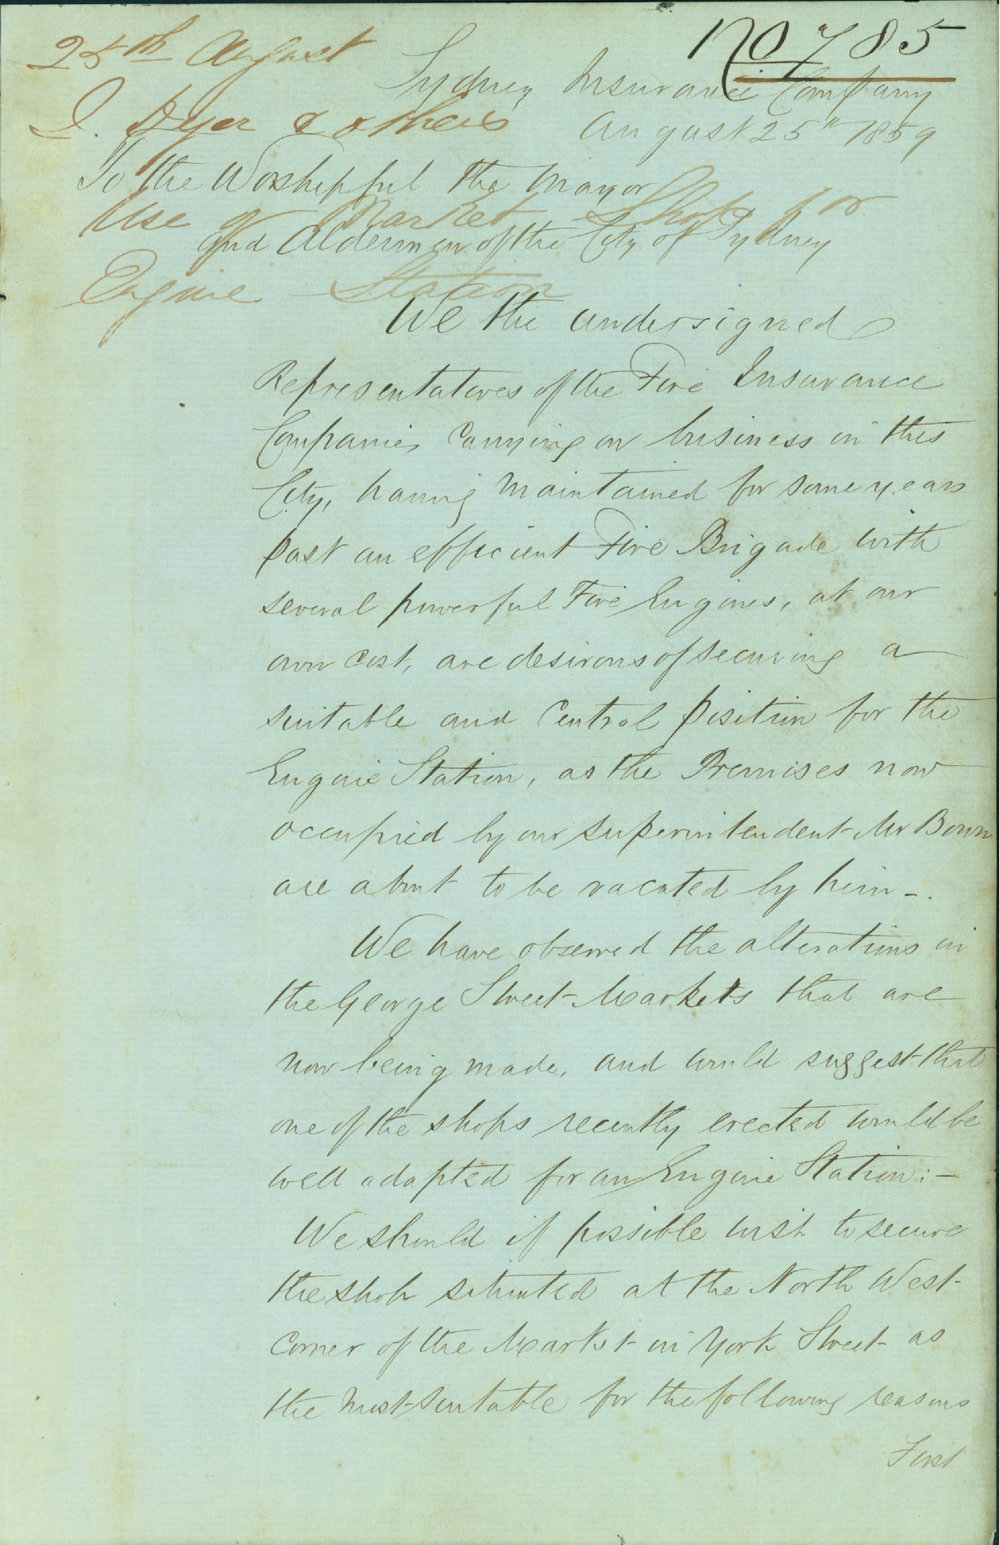 No 785
25th August
J. Dyer & others
Use of Market Shop for
Engine Station
Sydney Insurance Company
August 25th 1859
To the Worshipful the Mayor
and Aldermen of the City of Sydney
We the undersigned
Representatives of the Fire Insurance
Companies Carrying on business in this
City, having Maintained for some years
past an efficient Fire Brigade with
several powerful Fire Engines, at our
own Cost, are desirous of securing a
suitable and Central position for the
Engine Station, as the Premises now
occupied by our Superintendent Mr Bown
are about to be vacated by him -.
We have observed the alterations in
the George Street Markets that are
now being made, and would suggest that
one of the shops recently erected would be
well adapted for an Engine Station:-
We should if possible wish to secure
the shop situated at the North West
Corner of the Market in York Street as
the Most suitable for the following reasons
First